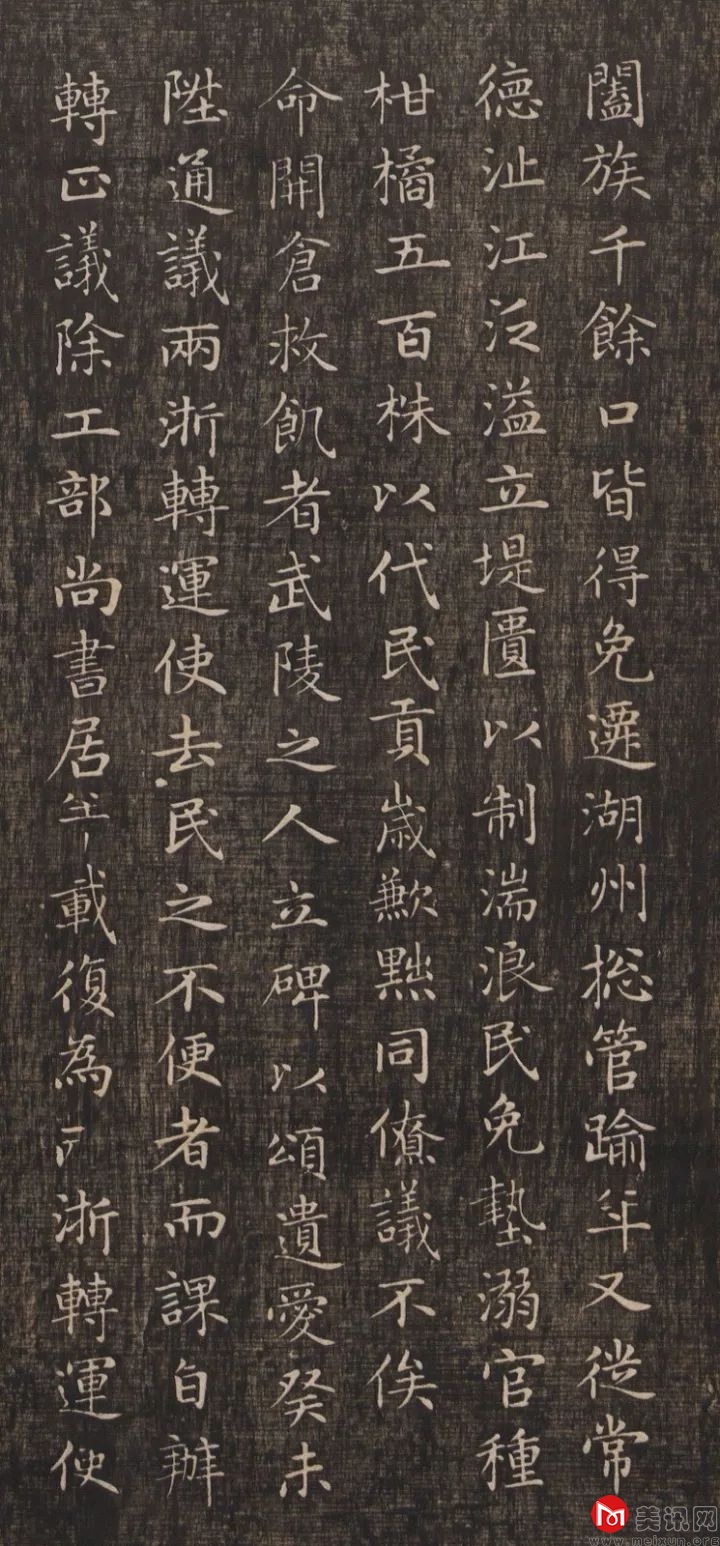 闔族千餘口皆得免遷湖州揔管踰年又從常
德沚江泛溢立堤匽以制湍浪民免墊溺官種
柑橘五百株以代民貢歳歉黙同僚議不俟
命開倉救飢者武陵之人立碑以頌遺愛癸未
陞通議兩浙轉運使去民之不便者而課自辦
轉正議除工部尚書居年載復為兩浙轉運使
美讯网
www.meixun.org